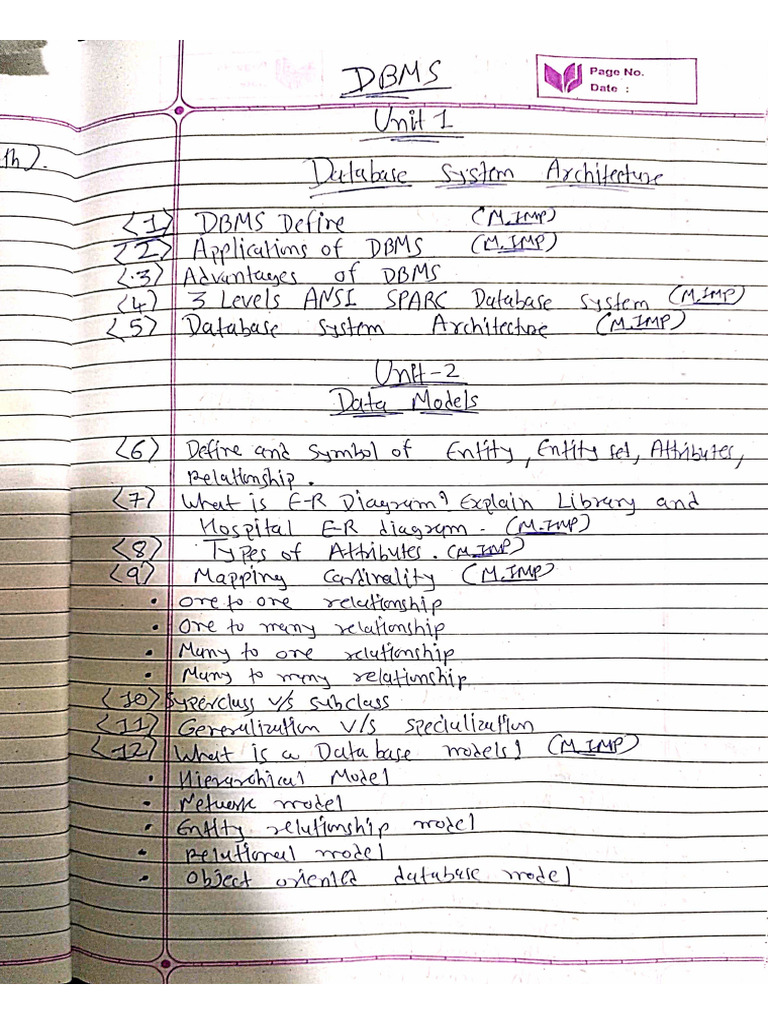 DBMS
Page No.
Date :
Unit 1
th).
Database System Architecture
<1> DBMS Define (M.IMP)
<2> Applications of DBMS (M.IMP)
<3> Advantages of DBMS
<4> 3 Levels ANSI SPARC Database system (M.IMP)
<5> Database system Architecture (M.IMP)
Unit-2
Data Models
<6> Define and symbol of Entity, Entity set, Attributes,
Relationship.
<7> What is E-R Diagram? Explain Library and
Hospital E-R diagram. (M.IMP)
<8> Types of Attributes. (M.IMP)
<9> Mapping Cardinality (M.IMP)
• One to one relationship
• One to many relationship
• Many to one relationship
• Many to many relationship
<10> Superclass v/s subclass
<11> Generalization v/s specialization
<12> What is a Database models? (M.IMP)
• Hierarchical Model
• Network model
• Entity relationship model
• Relational model
• Object oriented database model